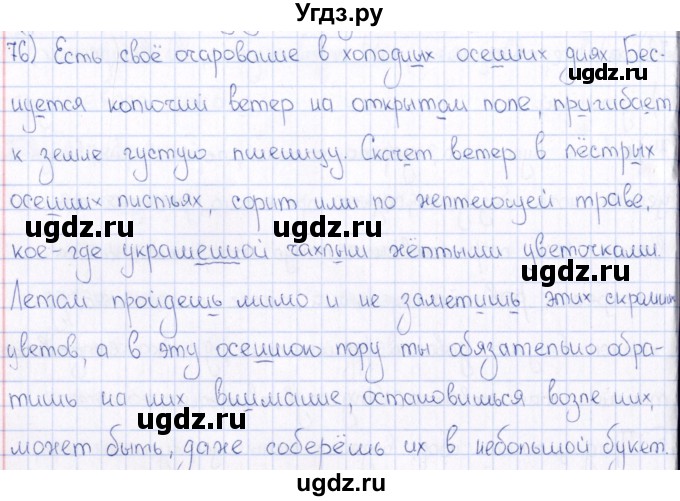 Угдз.ру
76) Есть своё очарование в холодных осенних днях Бес-
нуется колючий ветер на открытом поле, пригибает
к земле густую пшеницу. Скачет ветер в пёстрых
осенних листьях, сорит ими по желтеющей траве,
ugdz.ru
ugdz.ru
кое-где украшенной чахлым жёлтыми цветочками.
ugdz.ru
Летом пройдешь мимо и не заметишь этих скромных
цветов, а в эту осеннюю пору ты обязательно обра-
тишь на них внимание, остановишься возле них,
ugdz.ru
ugdz.ru
может быть, даже соберёшь их в небольшой букет.
ugdz.ru